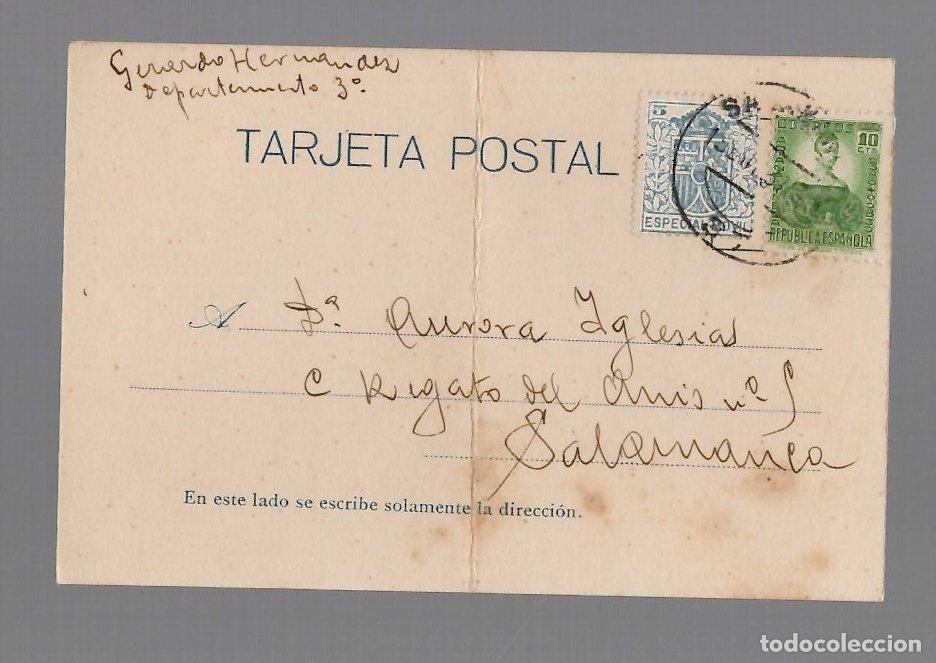 Gerardo Hernandez
Departamento 3º.
TARJETA POSTAL
5
ESPECIAL MOVIL
CORREOS
10
CTS
REPUBLICA ESPAÑOLA
A Dª. Aurora Iglesias
C Rigato del Anis nº 5
Salamanca
En este lado se escribe solamente la dirección.
todocoleccion